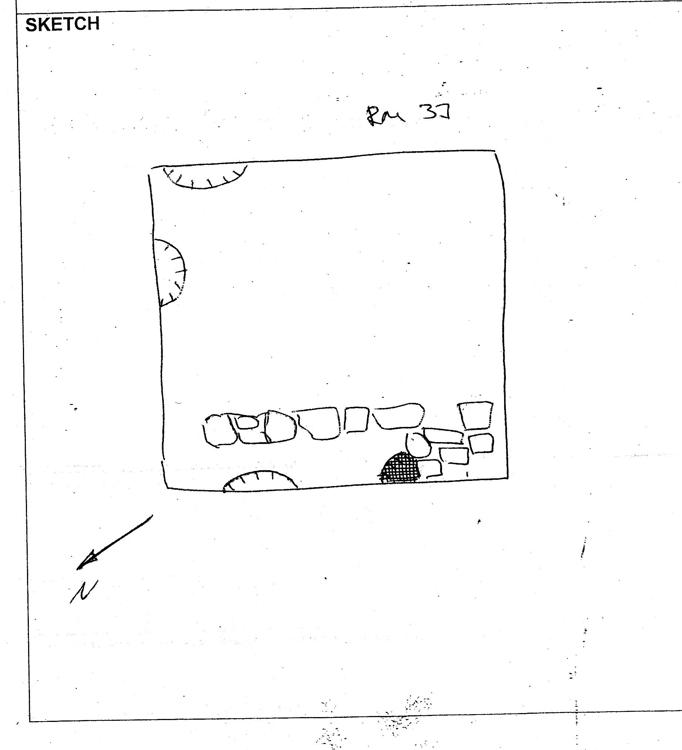 SKETCH
Rm 33
N